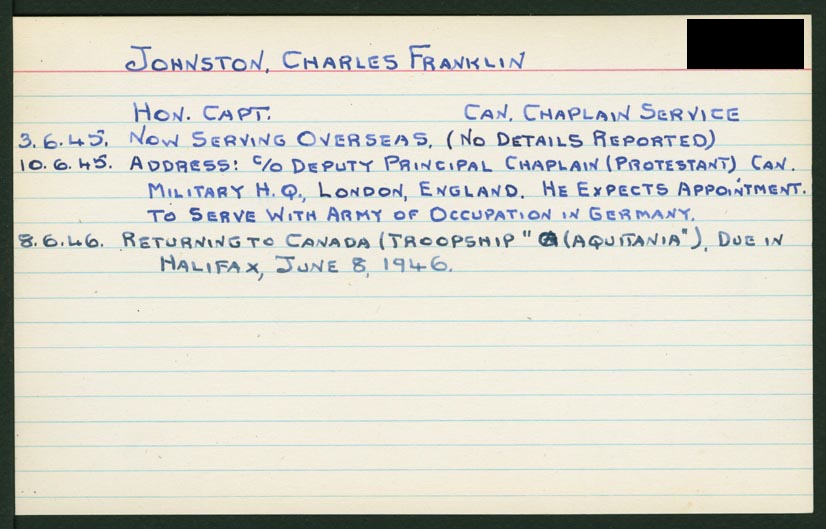 JOHNSTON, CHARLES FRANKLIN
HON. CAPT. CAN. CHAPLAIN SERVICE
3.6.45. NOW SERVING OVERSEAS. (NO DETAILS REPORTED)
10.6.45. ADDRESS: C/O DEPUTY PRINCIPAL CHAPLAIN (PROTESTANT) CAN.
MILITARY H.Q., LONDON, ENGLAND. HE EXPECTS APPOINTMENT.
TO SERVE WITH ARMY OF OCCUPATION IN GERMANY.
8.6.46. RETURNING TO CANADA (TROOPSHIP " (AQUITANIA"), DUE IN
HALIFAX, JUNE 8, 1946.